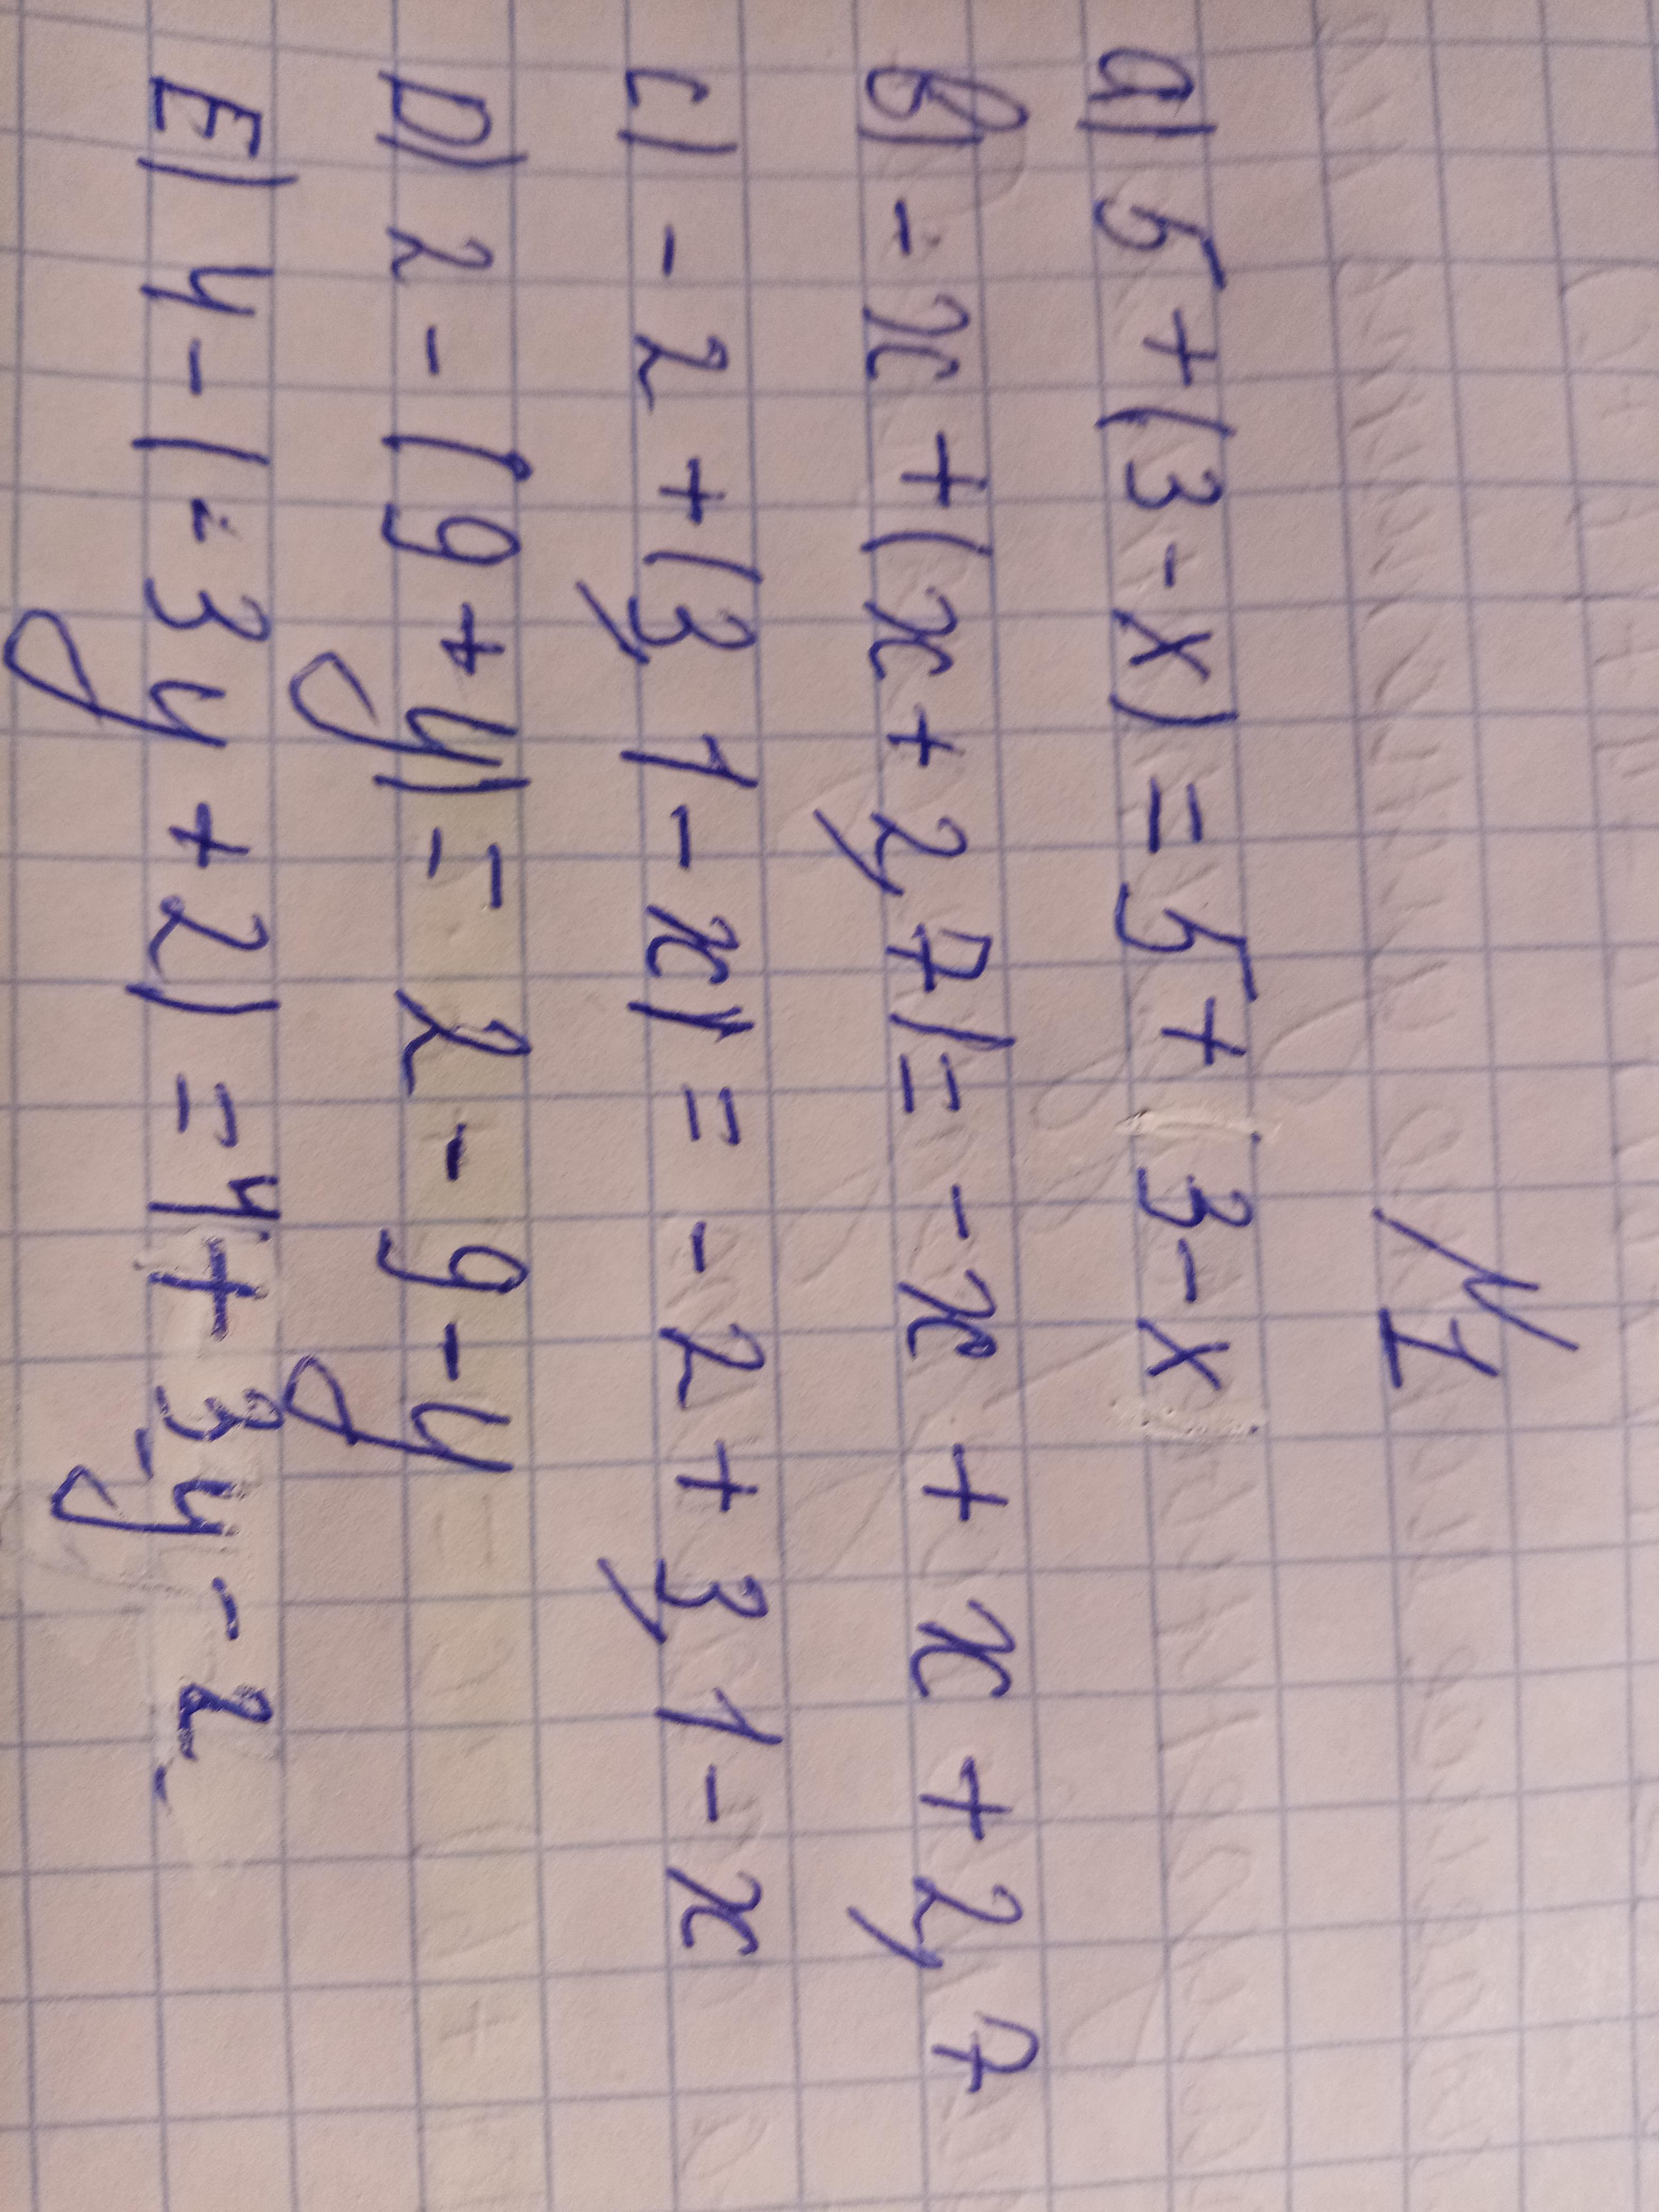 №1
a) 5 + (3 - x) = 5 + 3 - x
B) - x + (x + 2,7) = - x + x + 2,7
c) - 2 + (3,1 - x) = - 2 + 3,1 - x
D) 2 - (9 + y) = 2 - 9 - y
E) 4 - (- 3y + 2) = 4 + 3y - 2